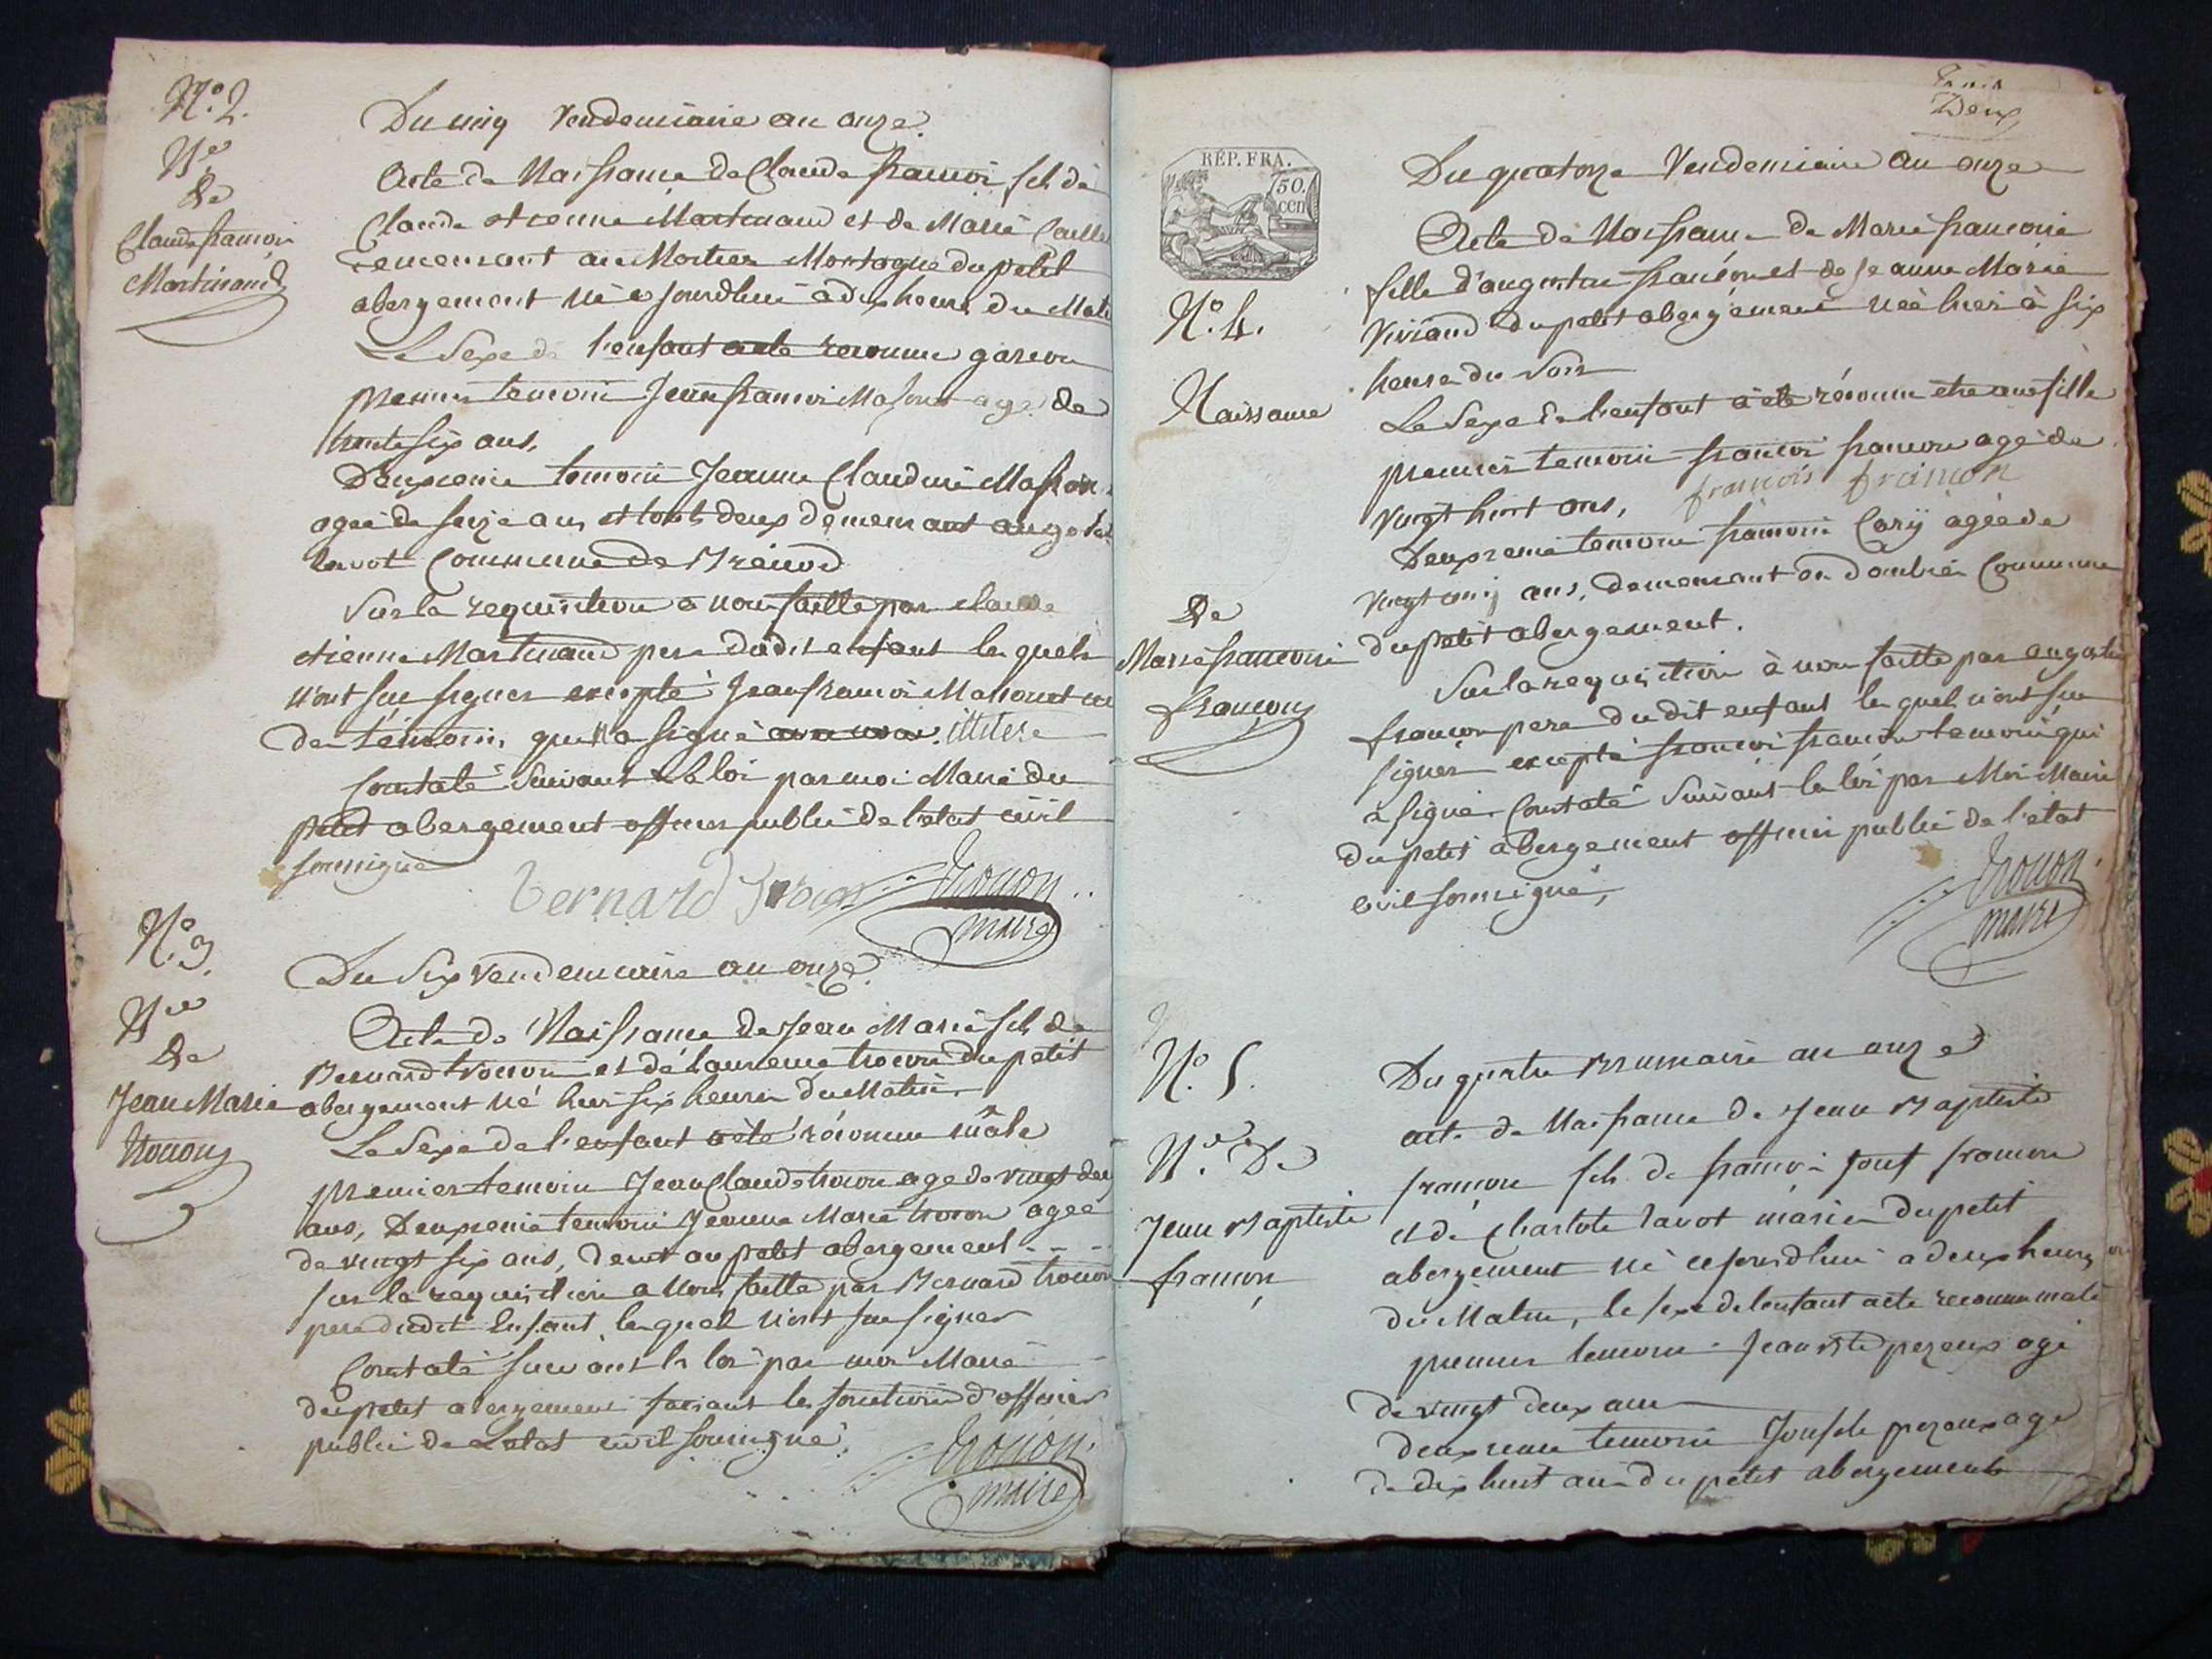 N.º 2.
Du cinq Vendemiaire an onze.
N.ce
de
Claude francois
Martinand
Acte de Naissance de Claude francois fils de
Claude etienne Martinand et de Marie
demeurant au Montagne du petit
abergement né a jourdhui à dix heures du Mati
Le Sexe de l'enfant a ete reconnu garcon
premier temoin Jean francois Massonet agé de
trente six ans,
Deuxieme temoin Jeanne Claudine Masson
ageé de seize ans, et touts deux demeurant au
lavot Commune de Brénod
Sur la requisition a nous faitte par claude
etienne Martinand pere dudit enfant les quels
n'ont sus signer excepté Jean francois Massonet un
des témoins, qui a signé illitere
Constaté Suivant la loi par moi Maire du
petit abergement officier public de l'etat civil
soussigné
Bernard Trocon Trocon
maire
N.º 3.
Du Six vendemiaire an onze.
N.ce
de
Jean Marie
trocon
Acte de Naissance de Jean Marie fils de
Bernard trocon et de laurence trocon du petit
abergement né hier six heures du Matin.
Le Sexe de l'enfant a été réconnu mâle
premier temoin Jean Claude trocon age de vingt deux
ans, Deuxieme temoin Jeanne Marie trocon ageé
de vingt six ans, demt au petit abergement
sur la requisition a nous faitte par Bernard trocon
pere dudit Enfant, les quel n'ont sus signer
Constaté suivant la loi par moi Maire
du petit abergement faisant les fonctions d'officier
public de Letat civil soussigné.
Trocon
maire
Deux
RÉP. FRA.
50.
cen
Du quatorze Vendemiaire an onze
N.º 4.
Naissance
De
Marie francoise
françon
Acte de Naissance de Marie francoise
fille d'augustin francon et de Jeanne Marie
Viviand du petit abergement née hier à six
heures du Soir
Le Sexe de l'enfant a été réconnu etre une fille
premier temoin francois francon agé de
vingt huit ans, francois francon
Deuxieme temoin francoise Cary agéé de
vingt cinq ans, demeurant Commune
du petit abergement.
Sur la requisition à nous faitte par augustin
francon pere du dit enfant les quel n'ont sus
signer excepté francois francon temoin qui
a signé. Constaté Suivant la loi par Moi Maire
du petit abergement officier public de l'etat
civil soussigné,
Trocon
maire
N.º 5.
Du quatre Brumaire an onze
N.ce De
Jean Baptiste
françon
acte de Naissance de Jean Baptiste
françon fils de francois francon
et de Charlote lavot mariés du petit
abergement né cejourdhui a deux heures
du Matin, le sexe de lenfant a ete reconnu male
premier temoin Jean Bte pezeux agé
de vingt deux ans
deuxieme temoin Joseph pezeux agé
de dix huit ans du petit abergement